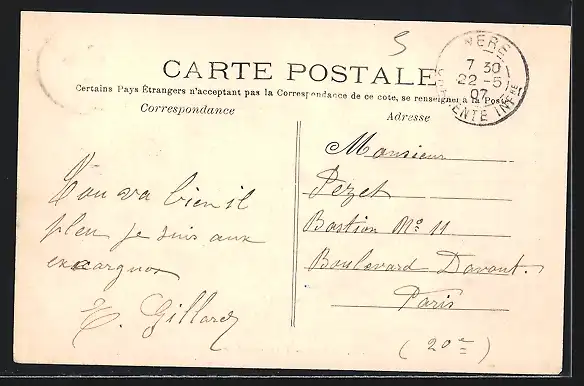 5
CARTE POSTALE
Certains Pays Étrangers n'acceptant pas la Correspondance de ce côté, se renseigner à la Poste
Correspondance
Adresse
NERE
7 30
22 - 5
07
ENTE INFRE
Tou va bien il
pleu je suis aux
excargnos
E. Gillard
Monsieur
Pezet
Bastion No 11
Boulevard Davout.
Paris
(20e)